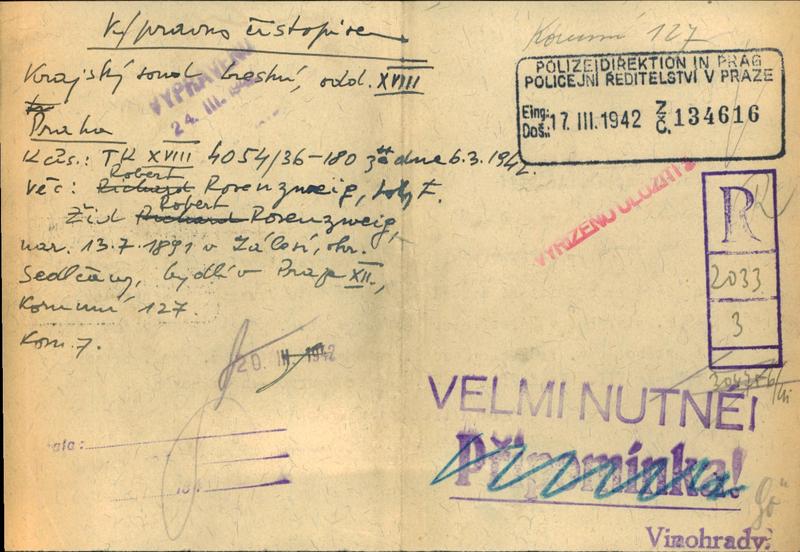 Krajský soud trestní, odd. XVIII
Praha
K čís.: TK XVIII 4054/36-180 ze dne 6.3.1942.
Robert
Věc: Richard Rosenzweig,
Robert
Žid Richard Rosenzweig,
nar. 13.7.1891 v Zálesí, okr.
Sedlčany, bydlí v Praze XII.,
Korunní 127.
Kom. 7.
VYPRAVENO
24. III. 1942
20. III. 1942
Korunní 127
POLIZEIDIREKTION IN PRAG
POLICEJNÍ ŘEDITELSTVÍ V PRAZE
Eing.:
Doš.: 17. III. 1942 Z. Č. 134616
VYŘÍZENO ULOŽITI
R
2033
3
VELMI NUTNÉ!
Připomínka!
Vinohrady.